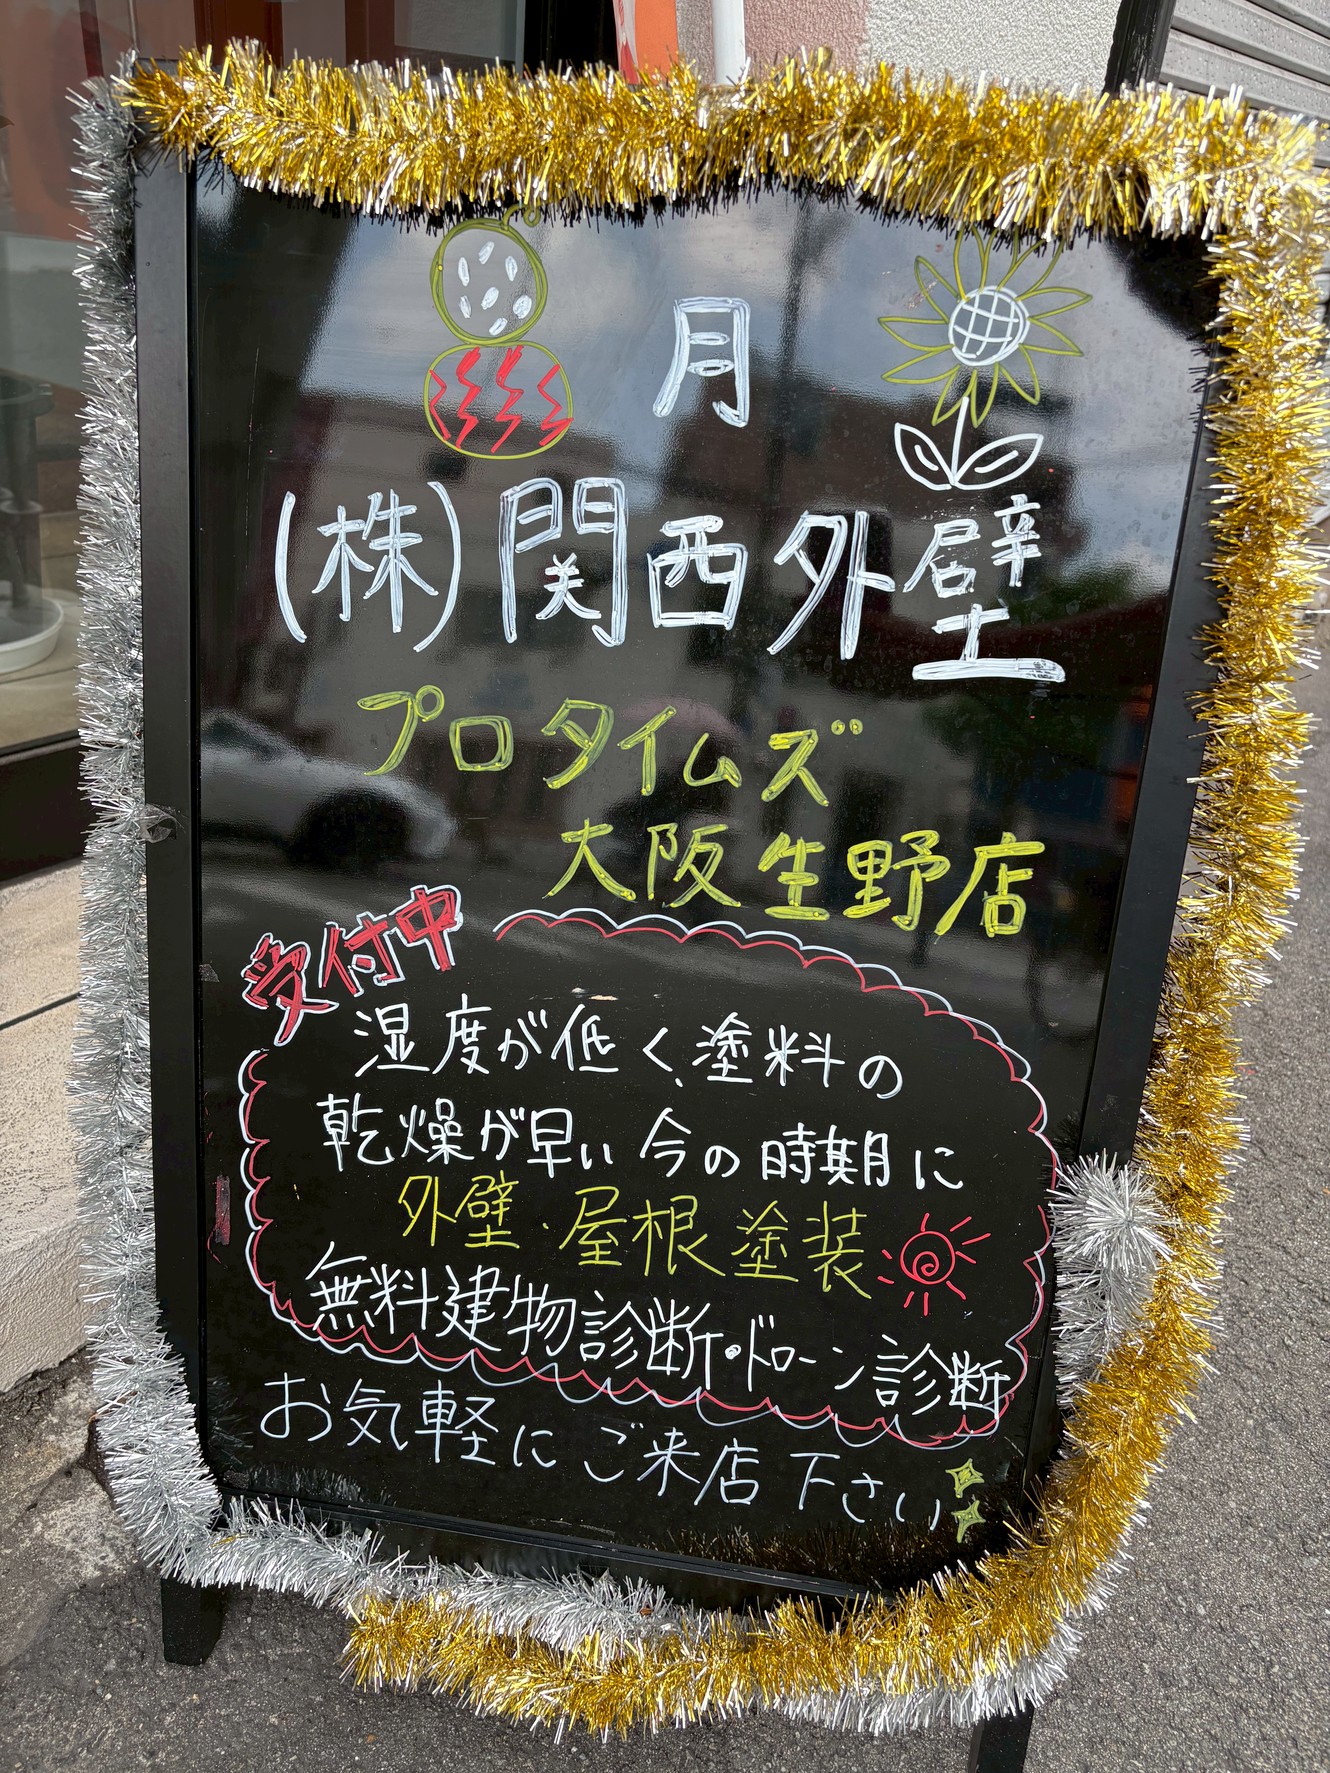 月
(株)関西外壁
プロタイムズ
大阪生野店
受付中
湿度が低く、塗料の
乾燥が早い今の時期に
外壁・屋根塗装
無料建物診断・ドローン診断
お気軽にご来店下さい